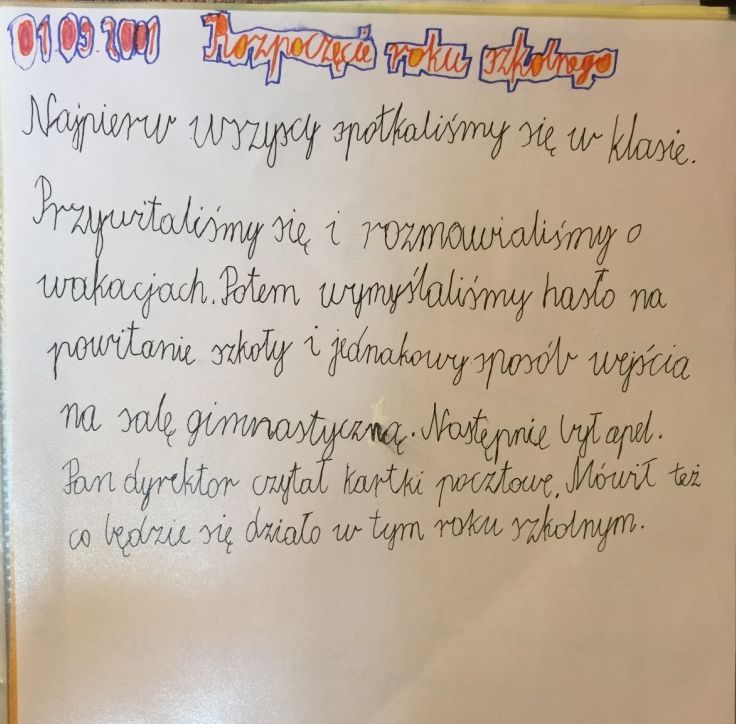 01 09.2001 Rozpoczęcie roku szkolnego
Najpierw wszyscy spotkaliśmy się w klasie.
Przywitaliśmy się i rozmawialiśmy o
wakacjach. Potem wymyślaliśmy hasło na
powitanie szkoły i jednakowy sposób wejścia
na salę gimnastyczną. Następnie był apel.
Pan dyrektor czytał kartki pocztowe. Mówił też
co będzie się działo w tym roku szkolnym.